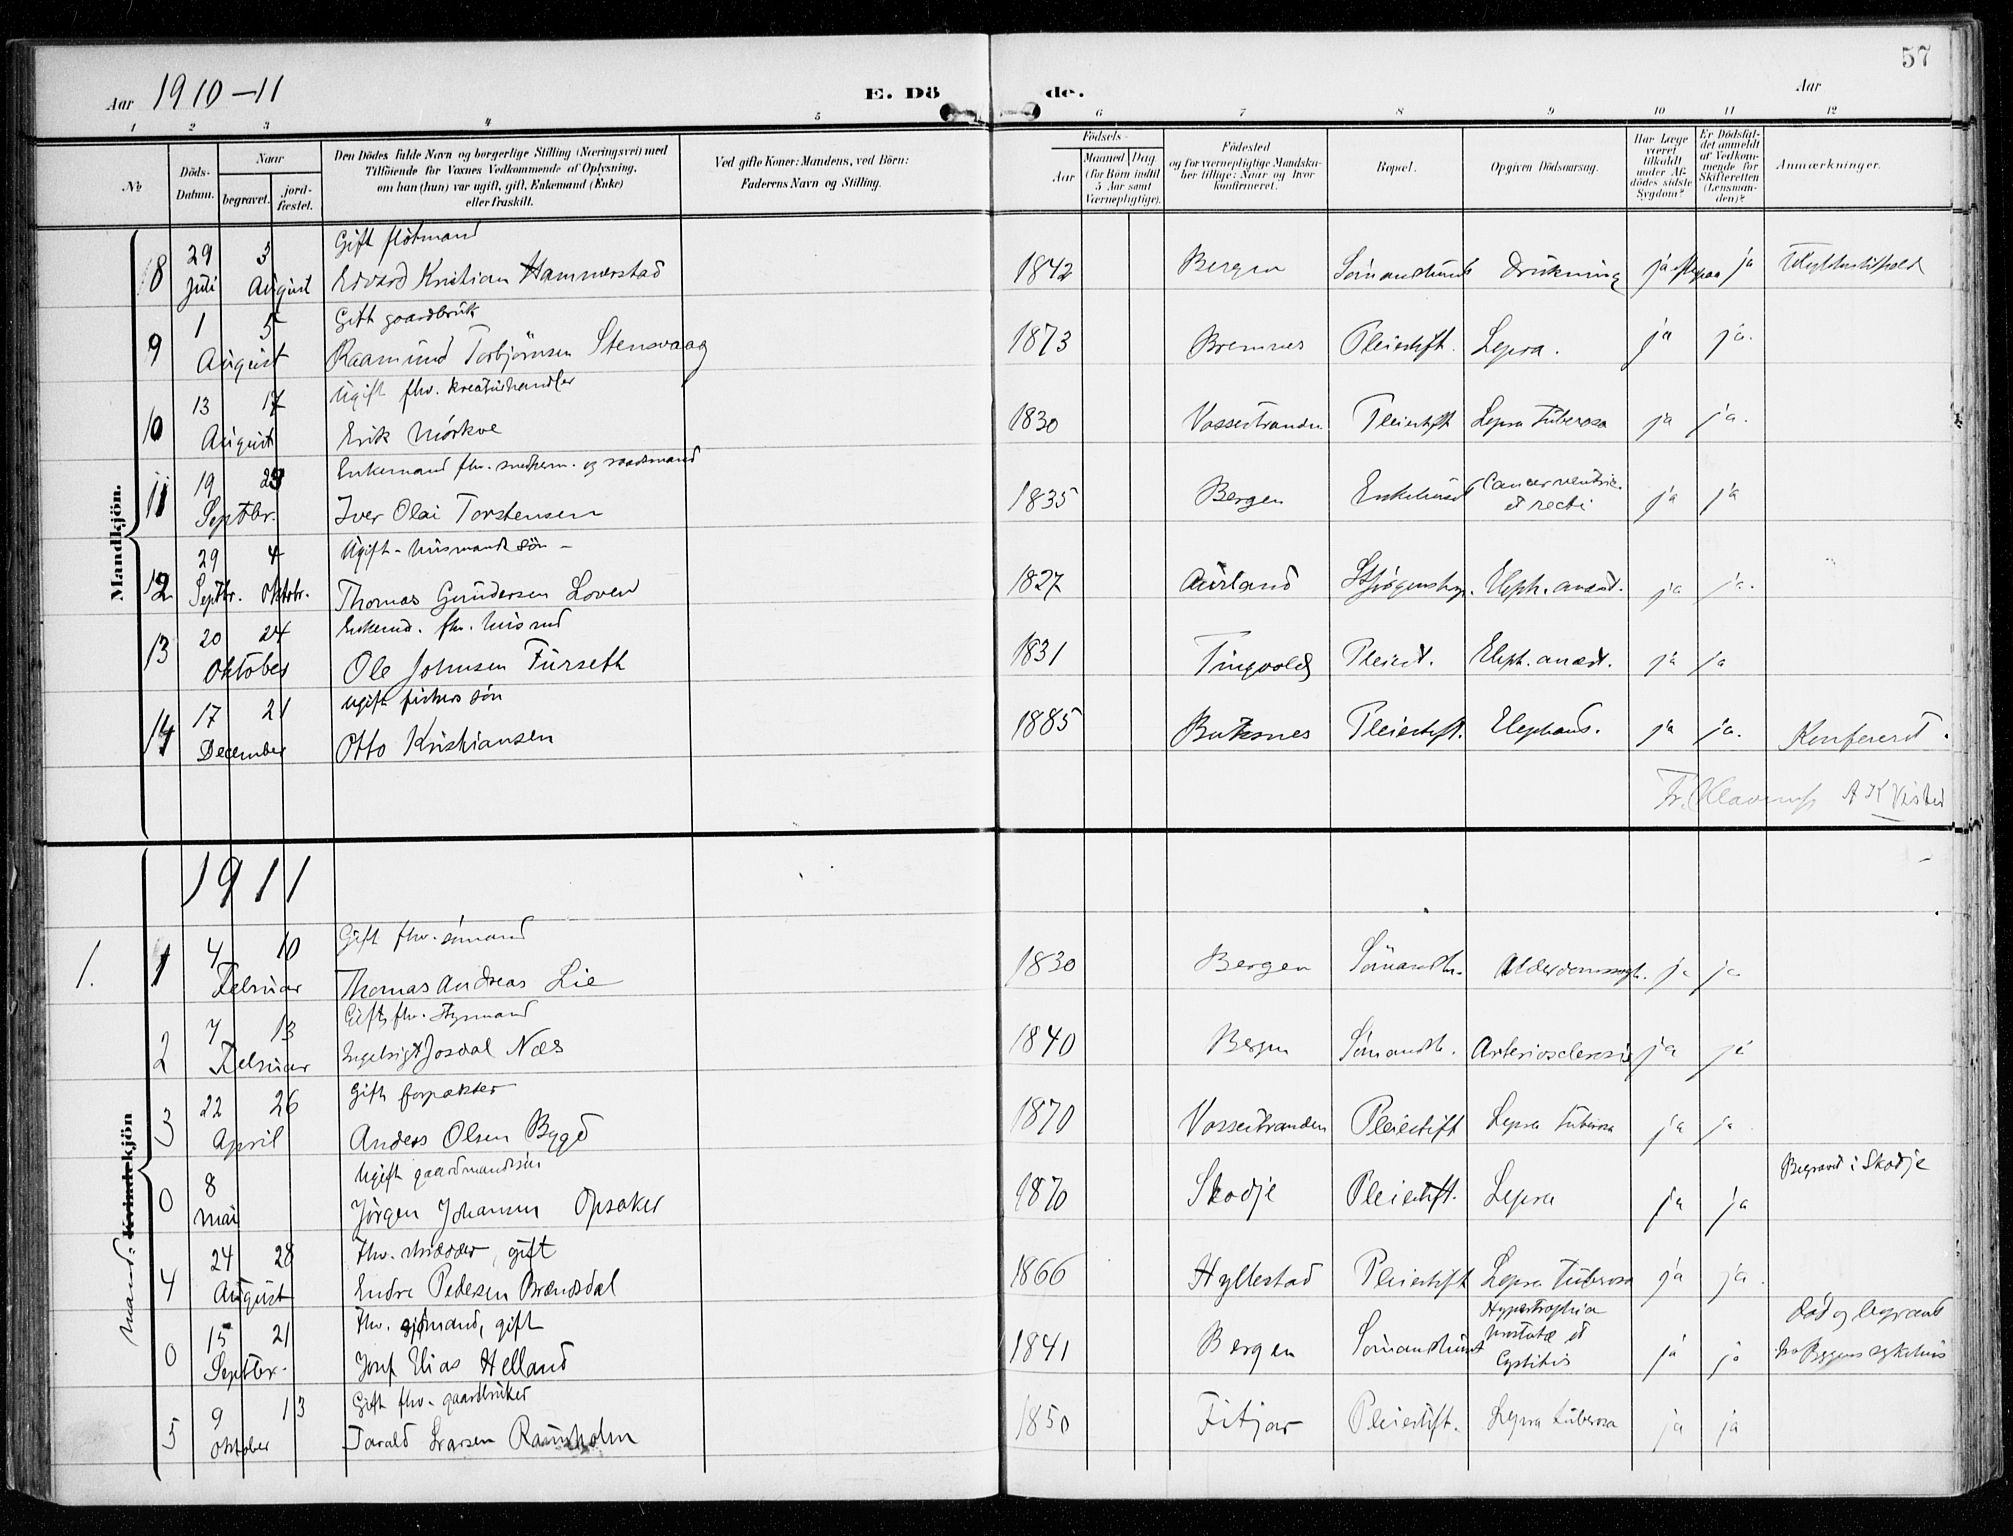 57
Aar 1910-11
E. Dö de.
Aar
1 2 3 4 5 6 7 8 9 10 11 12
№
Döds-Datum.
Naar
begravet.
jord-fæstet.
Den Dödes fulde Navn og borgerlige Stilling (Næringsvei) med
Tilföiende for Voxnes Vedkommende af Oplysning,
om han (hun) var ugift, gift, Enkemand (Enke)
eller fraskilt.
Ved gifte Koner: Mandens, ved Börn:
Faderens Navn og Stilling.
Födsels-
Aar
Maaned Dag
(for Börn indtil
5 Aar samt
Værnepligtige).
Födested
og for værnepligtige Mandska-
ber tillige: Naar og hvor
konfirmeret.
Bopæl.
Opgiven Dödsaarsag.
Har Læge
været
tilkaldt
under Af-
dödes sidste
Sygdom?
Er Dödsfal-
det anmeldt
af Vedkom-
mende for
Skifteretten
(Lensman-
den)?
Anmærkninger.
Mandkjön.
Gift flötmand
8 29 Juli 3 August Edvard Kristian Hammerstad 1842 Bergen Sömandshus Drukning ja ja Ulykkestilfeld
Gift gaardbruk
9 1 5 August Raamund Torbjörnsen Stensvaag 1873 Bremnes Pleiestift. Lepra. ja ja.
Ugift fhv. kreaturhandler
10 13 17 August Erik Mörkve 1830 Vossestranden Pleiestift Lepra tuberosa ja ja.
Enkemand fhv. snedkerm. og raadsmand
11 19 23 Septbr. Iver Olai Torstensen 1835 Bergen Enkehuset Cancer ventric. et recti ja ja
Ugift - husmandssön -
12 29 Septbr. 4 Oktobr. Thomas Gundersen Loven 1827 Aurland St Jörgenshosp. Eleph. anæst. ja ja.
Enkemd. fhv. husmd
13 20 24 Oktober Ole Johnsen Furseth 1831 Tingvold Pleiest. Eleph. anæst. ja ja
Ugift fiskers sön
14 17 21 December Otto Kristiansen 1885 Buksnes Pleiestift. Elephant. ja ja. Konfereret.
A K Visted
1911
Mand: Kvindekjön
Gift fhv. sömand
1. 1 4 10 Februar Thomas Andreas Lie 1830 Bergen Sömandsh. Alderdomssvagh. ja ja
Gift, fhv. Styrmand
2 7 13 Februar Ingebrigt Josdal Næs 1840 Bergen Sömandsh. Arteriosclerosis ja ja
Gift forpakter
3 22 26 April Anders Olsen Bygd 1870 Vossestranden Pleiestift Lepra tuberosa ja ja
Ugift gaardmandssön
0 8 Mai Jörgen Johansen Opsaker 1870 Skodje Pleiestift. Lepra ja ja Begravet i Skodje
Fhv. skrædder, gift
4 24 28 August Endre Pedersen Brændsdal 1866 Hyllestad Pleiestift Lepra tuberosa ja ja.
Fhv. sjömand, gift
0 15 21 Septbr. Josef Elias Helland 1841 Bergen Sömandshuset Hypertrophia prostatæ et Cystitis ja ja Död og begravet fra Bergens sykehus
Gift fhv. gaardbruker
5 9 13 Oktober Tarald Larsen Raunholm 1850 Fitjar Pleiestift. Lepra tuberosa ja ja